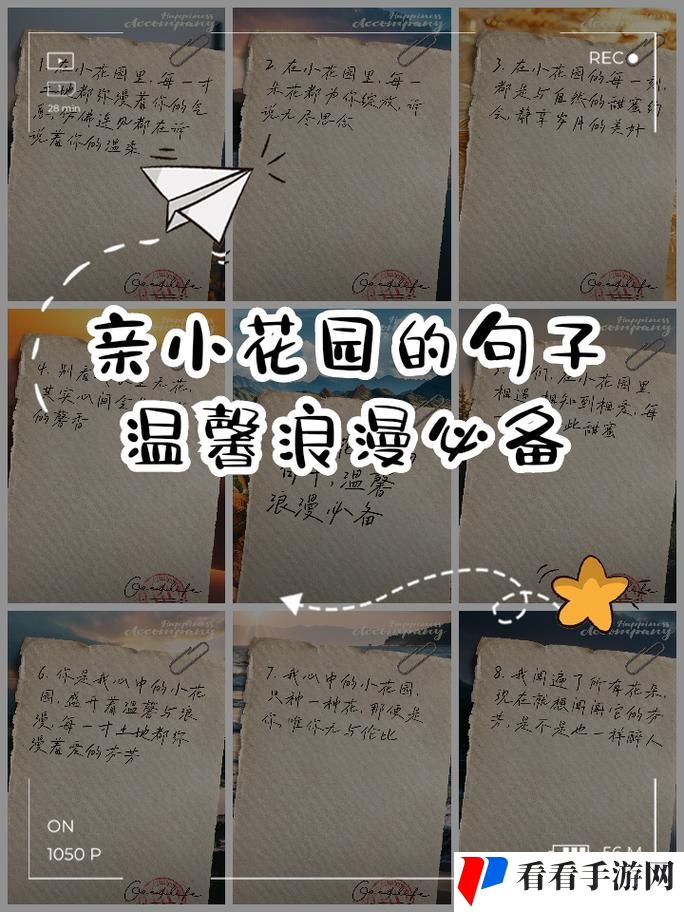 Happiness
Accompany
Happiness
Accompany
REC
28 min
1. 在小花园里，每一寸
土地都弥漫着你的气
息，仿佛连风都在诉
说着你的温柔
2. 在小花园里，每一
朵花都为你绽放，诉
说无尽思念
3. 在小花园的每一刻，
都是与自然的甜蜜约
会，静享岁月的美好
Goodlife
Goodlife
Goodlife
亲小花园的句子
温馨浪漫必备
4. 别看
其实心间
的馨香
温馨
浪漫必备
们，在小花园里
相遇 相知到相爱，每
此甜蜜
Goodlife
Happiness
Accompany
Happiness
Accompany
Happiness
Accompany
6. 你是我心中的小花
园，盛开着温馨与浪
漫，每一寸土地都弥
漫着爱的芬芳
7. 我心中的小花园，
只种一种花，那便是
你，唯你无与伦比
8. 我闻遍了所有花朵，
现在就想闻闻它的芬
芳，是不是也一样醉人
ON
1050 P
56 M
Goodlife
Goodlife
看看手游网